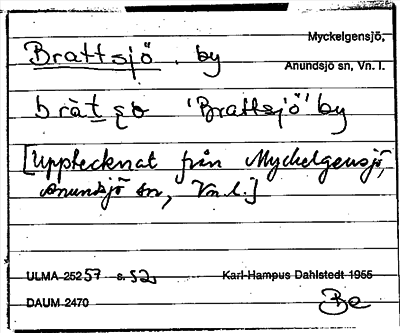 Myckelgensjö,
Brattsjö, by
Anundsjö sn, Vn. l.
'Brattsjö' by
[Upptecknat från Myckelgensjö,
Anundsjö sn, Vn l.]
ULMA 25257 s. 52. Karl-Hampus Dahlstedt 1965
DAUM 2470
Be